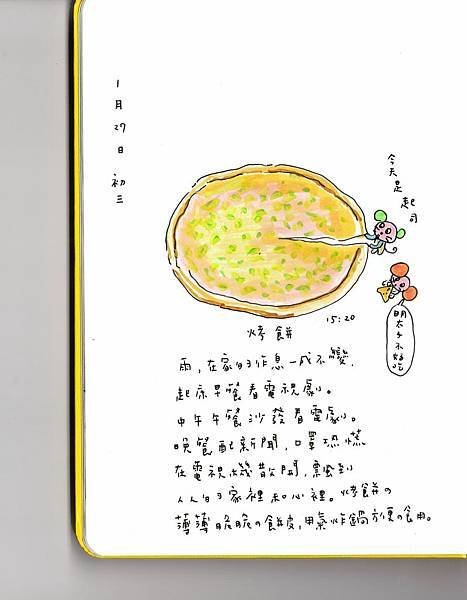 1月27日 初三
今天是起司
明太子不好吃
15:20
烤餅
雨,在家的作息一成不變,
起床早餐看電視劇。
中午午餐沙發看電劇。
晚餐配新聞,口罩恐慌
在電視機散開,飄到
人人的家裡和心裡。烤餅の
薄薄脆脆の餅皮,用氣炸鍋方便の食用。